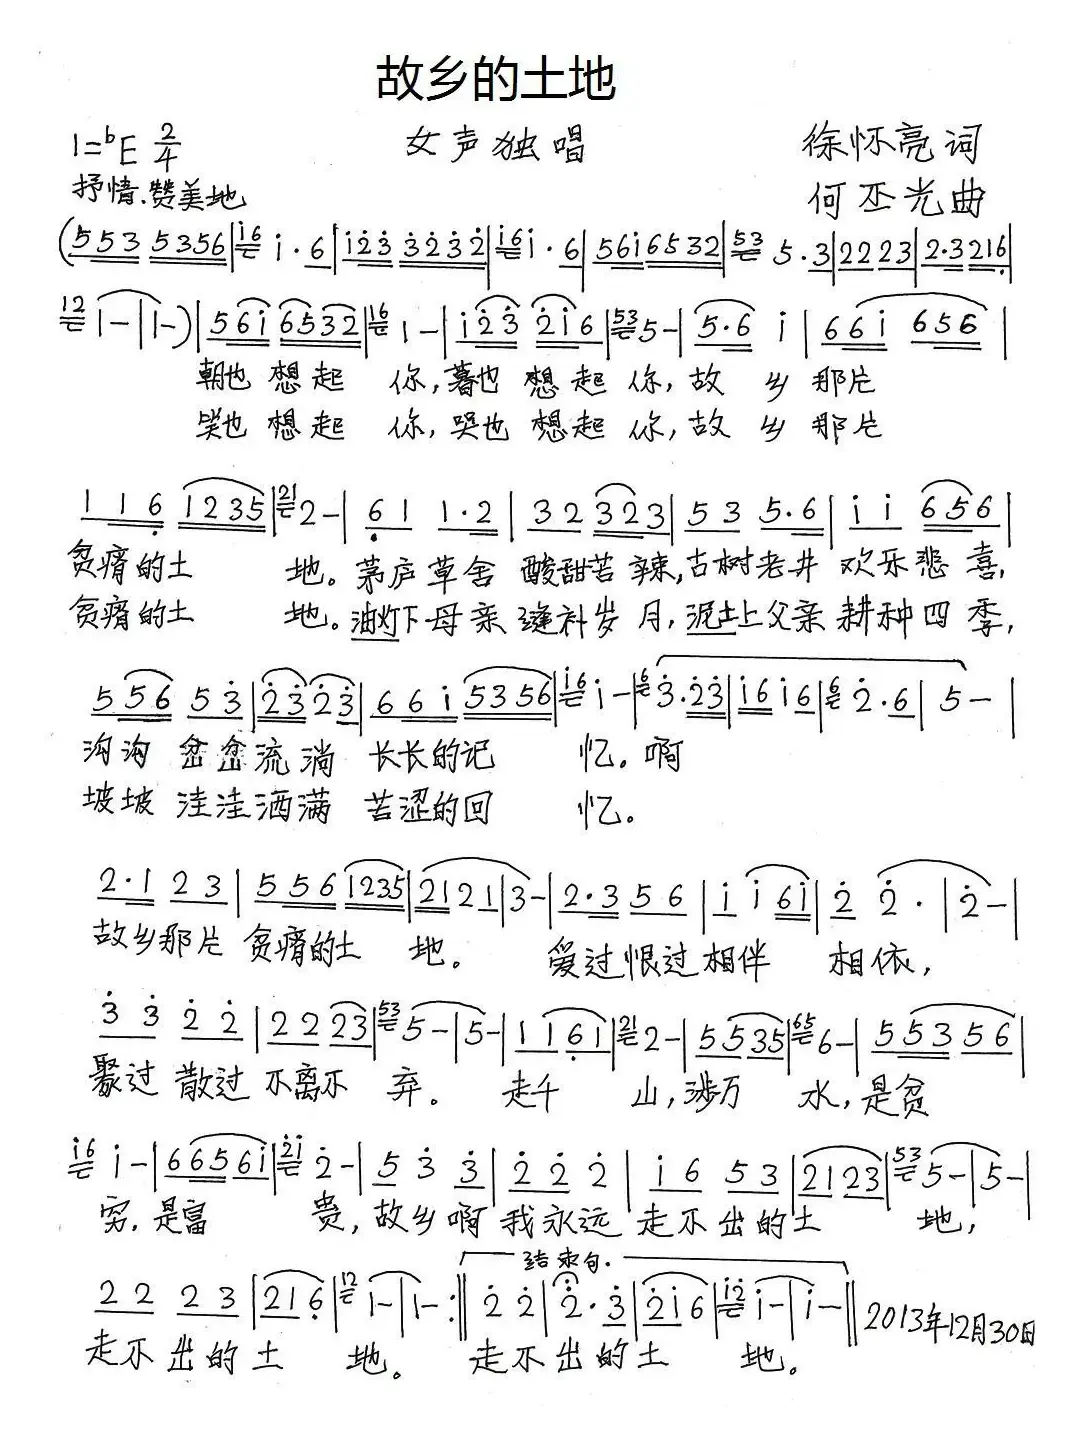 故乡的土地
1=bE 2/4 女声独唱 徐怀亮词
抒情.赞美地 何丕光曲
(553 5356|i6 i·6|i23 3232|i6 i·6|56i6532|53 5·3|2223|2·3216|
12 1-|1-)|56i 6532|16 1-|i23 2i6|53 5-|5·6 i|66i 656|
朝也想起 你,暮也想起你,故 乡那片
笑也想起 你,哭也想起你,故 乡那片
116 1235|21 2-|61 1·2|32 323|53 5·6|i i 656|
贫瘠的土 地。茅庐草舍 酸甜苦辣,古树老井 欢乐悲喜,
贫瘠的土 地。油灯下母亲缝补岁月,泥土上父亲耕种四季,
556 53|2323|66i 5356|i6 i-|6 3·23|i6i6|6 2·6|5-|
沟沟岔岔流淌 长长的记 忆。啊
坡坡洼洼洒满 苦涩的回 忆。
2·1 23|556 1235|2121|3-|2·3 56|i i6i|2 2·|2-|
故乡那片 贫瘠的土 地。 爱过恨过相伴 相依,
33 22|2223|53 5-|5-|1161|21 2-|5535|65 6-|553 56|
聚过散过不离不 弃。 走千 山,涉万 水,是贫
i6 i-|6656i|2i 2-|5 3 3|2 2 2|i6 53|2123|53 5-|5-|
穷,是富 贵,故乡啊我永远走不出的土 地,
22 23|216|12 1-|1-:‖结束句.22|2·3|2i6|i2 i-|i-‖2013年12月30日
走不出的土 地。 走不出的土 地。